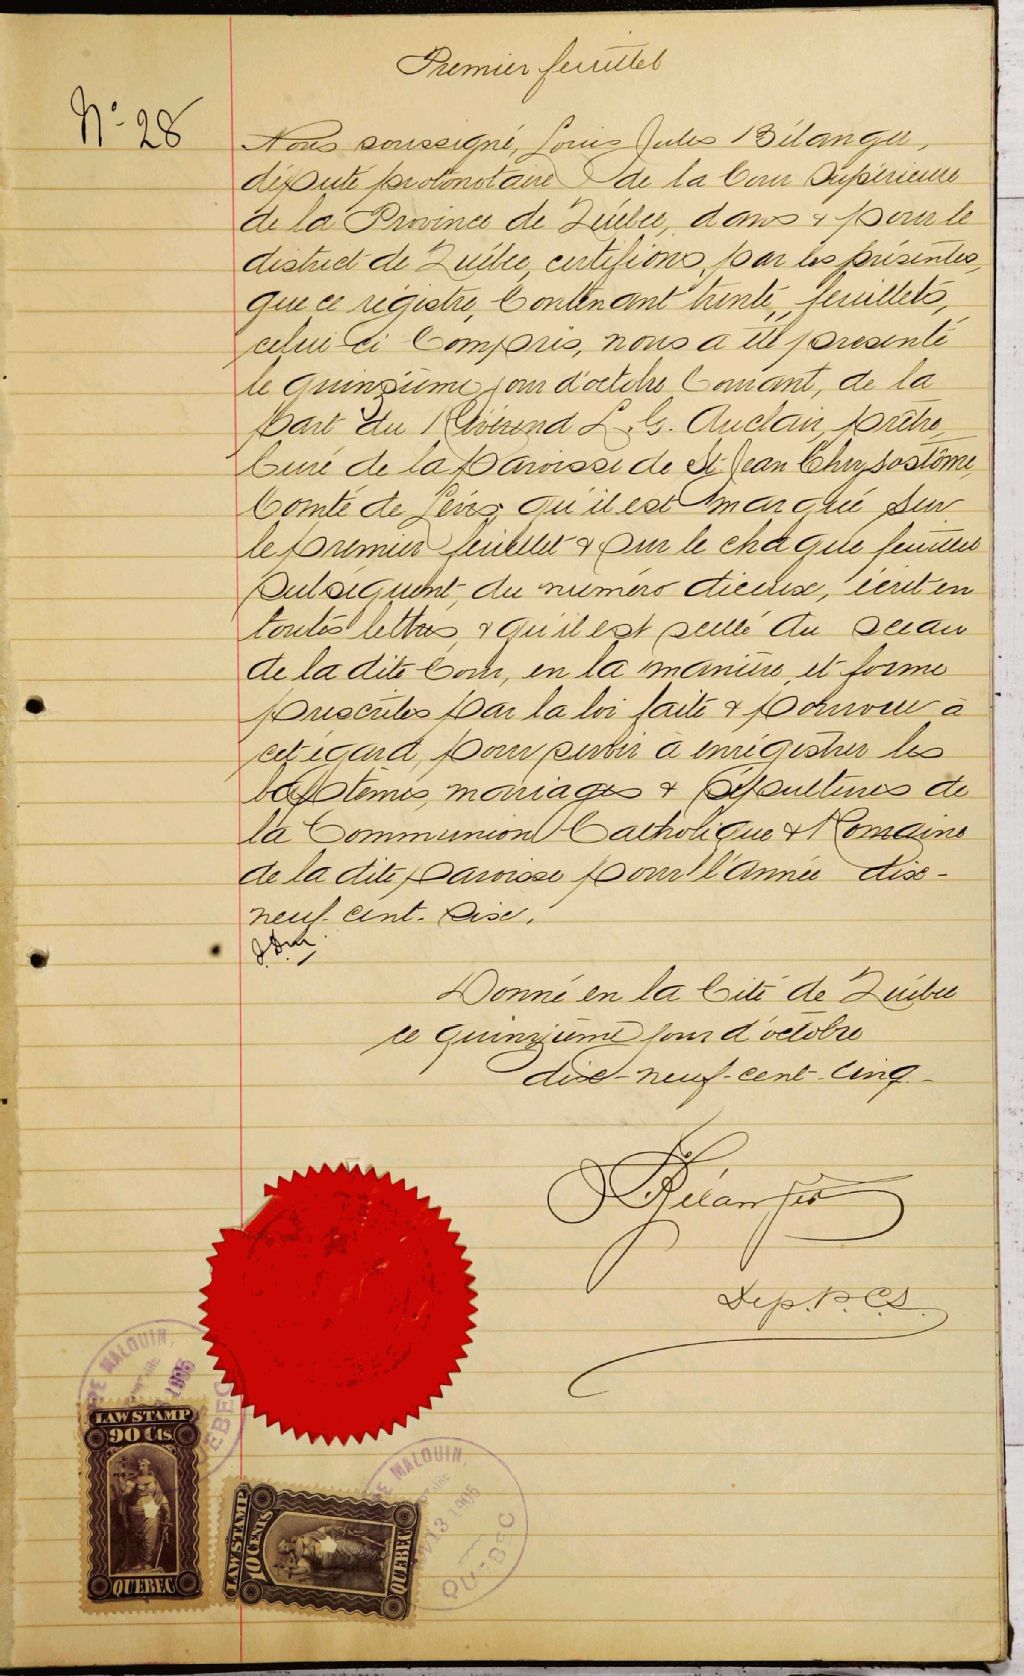 Premier feuillet
No. 28
Nous soussigné, Louis Jules Bélanger,
député protonotaire de la Cour Supérieure
de la Province de Québec, dans & pour le
district de Québec, certifions, par les présentes,
que ce régistre, Contenant trente, feuillets,
celui ci Compris, nous a été présenté
le quinzième jour d'octobre Courant, de la
part du Révérend L. G. Auclair, prêtre,
Curé de la paroisse de St. Jean Chrysostôme,
Comté de Lévis, qu'il est marqué sur
le premier feuillet & sur le chaque feuillet
subséquent, du numéro écrit en
toutes lettres, & qu'il est scellé du sceau
de la dite Cour, en la manière, et forme
prescrites par la loi faite & pourvue à
cet égard, pour servir à enrégistrer les
baptêmes, mariages & sépultures de
la Communion Catholique & Romaine
de la dite, paroisse pour l'année dix-
neuf-cent-six.
Donné en la Cité de Québec
ce quinzième jour d'octobre
dix-neuf-cent-cinq.-
Bélanger
Dep. P. C. S.
MALOUIN,
1905
QUEBEC
LAW STAMP
90 Cts.
QUEBEC
MALOUIN,
13 1905
QUEBEC
LAW STAMP
10 CENTS
QUEBEC